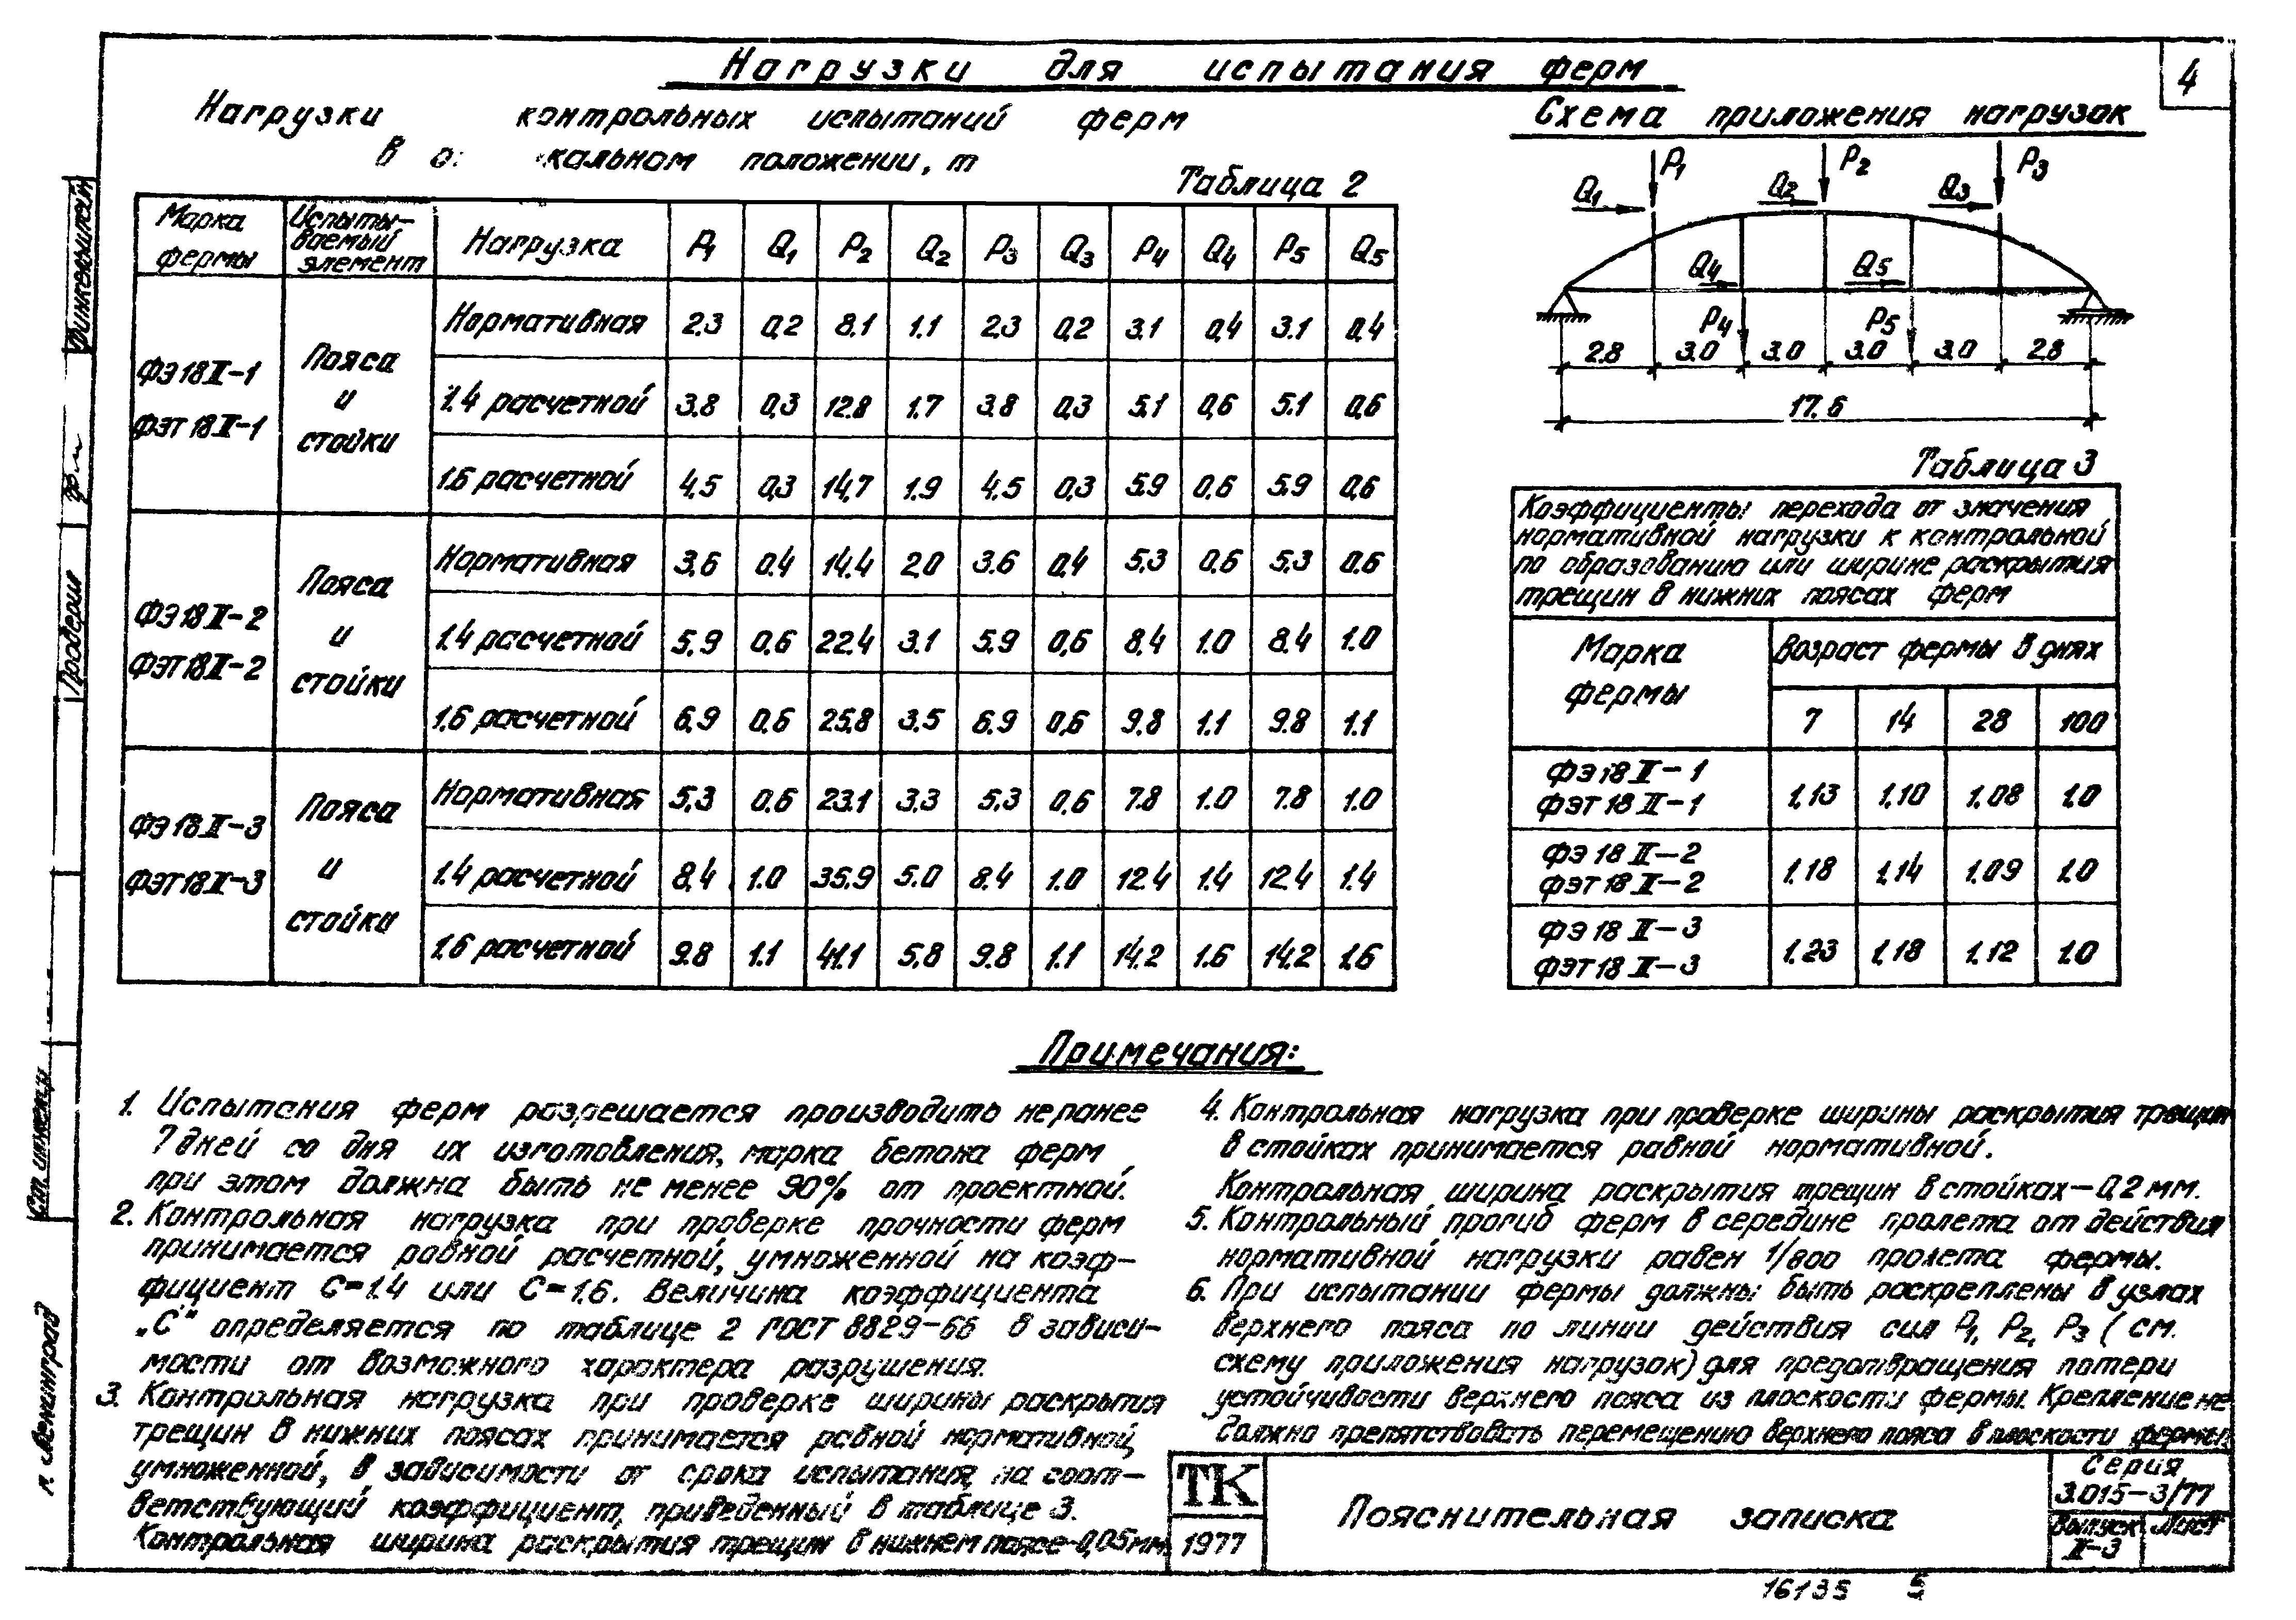 Нагрузки для испытания ферм
4
Нагрузки контрольных испытаний ферм
в положении, т
Таблица 2
Марка фермы | Испыты-ваемый элемент | Нагрузка | P1 | Q1 | P2 | Q2 | P3 | Q3 | P4 | Q4 | P5 | Q5
ФЭ18II-1 ФЭТ18II-1 | Пояса и стойки | Нормативная | 2.3 | 0,2 | 8.1 | 1.1 | 2.3 | 0,2 | 3.1 | 0,4 | 3.1 | 0,4
1.4 расчетной | 3.8 | 0,3 | 12.8 | 1.7 | 3.8 | 0,3 | 5.1 | 0,6 | 5.1 | 0,6
1.6 расчетной | 4,5 | 0,3 | 14,7 | 1.9 | 4.5 | 0,3 | 5.9 | 0.6 | 5.9 | 0,6
ФЭ18II-2 ФЭТ18II-2 | Пояса и стойки | Нормативная | 3,6 | 0.4 | 14.4 | 2.0 | 3.6 | 0,4 | 5.3 | 0.6 | 5.3 | 0.6
1.4 расчетной | 5,9 | 0.6 | 22.4 | 3.1 | 5.9 | 0,6 | 8,4 | 1.0 | 8,4 | 1.0
1.6 расчетной | 6,9 | 0.6 | 25.8 | 3.5 | 6.9 | 0,6 | 9.8 | 1.1 | 9.8 | 1.1
ФЭ18II-3 ФЭТ18II-3 | Пояса и стойки | Нормативная | 5,3 | 0.6 | 23.1 | 3.3 | 5.3 | 0,6 | 7.8 | 1.0 | 7.8 | 1.0
1.4 расчетной | 8,4 | 1.0 | 35.9 | 5.0 | 8.4 | 1.0 | 12.4 | 1.4 | 12.4 | 1.4
1.6 расчетной | 9.8 | 1.1 | 41.1 | 5.8 | 9.8 | 1.1 | 14.2 | 1.6 | 14.2 | 1.6
Схема приложения нагрузок
P1 P2 P3
Q1 Q2 Q3
Q4 Q5
P4 P5
2.8 3.0 3.0 3.0 3.0 2.8
17.6
Таблица 3
Коэффициенты перехода от значения
нормативной нагрузки к контрольной
по образованию или ширине раскрытия
трещин в нижних поясах ферм
Марка фермы | Возраст фермы в днях
7 | 14 | 28 | 100
ФЭ18II-1 ФЭТ18II-1 | 1,13 | 1,10 | 1.08 | 1.0
ФЭ18II-2 ФЭТ18II-2 | 1,18 | 1,14 | 1.09 | 1.0
ФЭ18II-3 ФЭТ18II-3 | 1.23 | 1,18 | 1.12 | 1.0
Примечания:
1. Испытания ферм разрешается производить не ранее
7 дней со дня их изготовления, марка бетона ферм
при этом должна быть не менее 90% от проектной.
2. Контрольная нагрузка при проверке прочности ферм
принимается равной расчетной, умноженной на коэф-
фициент С=1.4 или С=1.6. Величина коэффициента
„С" определяется по таблице 2 ГОСТ 8829-66 в зависи-
мости от возможного характера разрушения.
3. Контрольная нагрузка при проверке ширины раскрытия
трещин в нижних поясах принимается равной нормативной,
умноженной, в зависимости от срока испытания, на соот-
ветствующий коэффициент, приведенный в таблице 3.
Контрольная ширина раскрытия трещин в нижнем поясе-0,05мм.
4. Контрольная нагрузка при проверке ширины раскрытия трещин
в стойках принимается равной нормативной.
Контрольная ширина раскрытия трещин в стойках-0,2мм.
5. Контрольный прогиб ферм в середине пролета от действия
нормативной нагрузки равен 1/800 пролета фермы.
6. При испытании фермы должны быть раскреплены в узлах
верхнего пояса по линии действия сил P1, P2, P3 (см.
схему приложения нагрузок) для предотвращения потери
устойчивости верхнего пояса из плоскости фермы. Крепление не
должно препятствовать перемещению верхнего пояса в плоскости фермы.
ТК
1977
Пояснительная записка
Серия
3.015-3/77
Выпуск
II-3
Лист
16135 5
Финкельштейн
Проверил
Ст. инженер
г. Ленинград